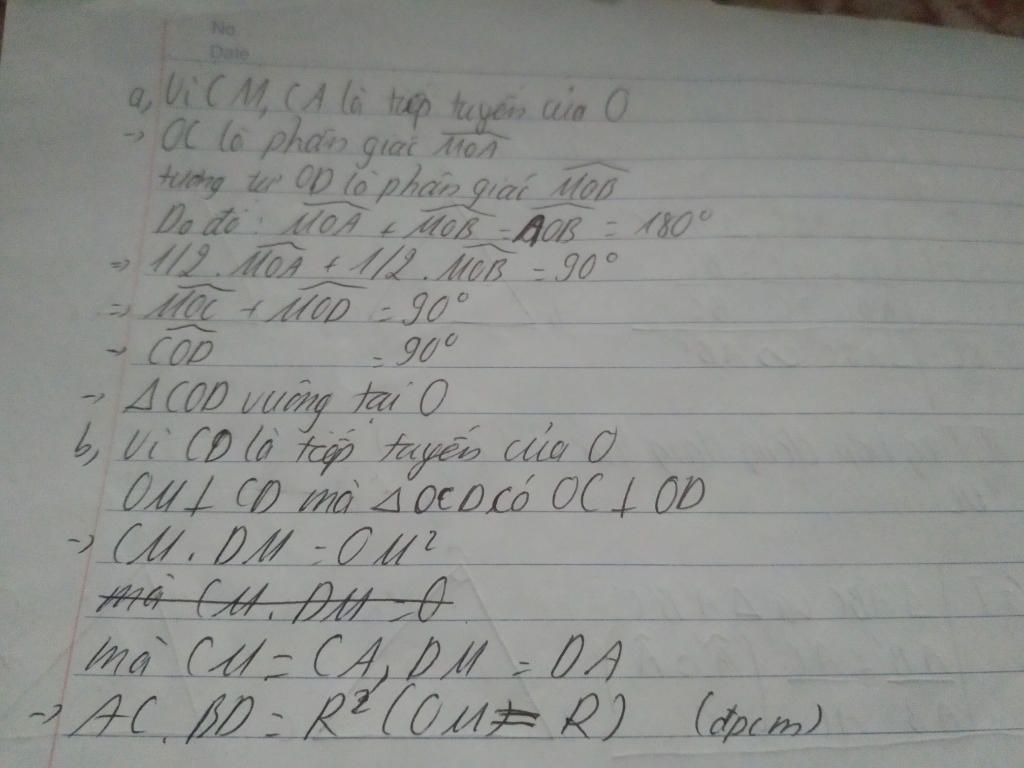 No
Date
a, Vì CM, CA là tiếp tuyến của O
-> OC là phân giác MOA
tương tự OD là phân giác MOB
Do đó: MOA + MOB = AOB = 180°
=> 1/2. MOA + 1/2. MOB = 90°
=> MOC + MOD = 90°
-> COD = 90°
-> ΔCOD vuông tại O
b, Vì CD là tiếp tuyến của O
OM ⊥ CD mà ΔOCD có OC ⊥ OD
-> CM. DM = OM²
mà CM. DM = O
mà CM = CA, DM = DA
-> AC. BD = R² (OM = R) (đpcm)